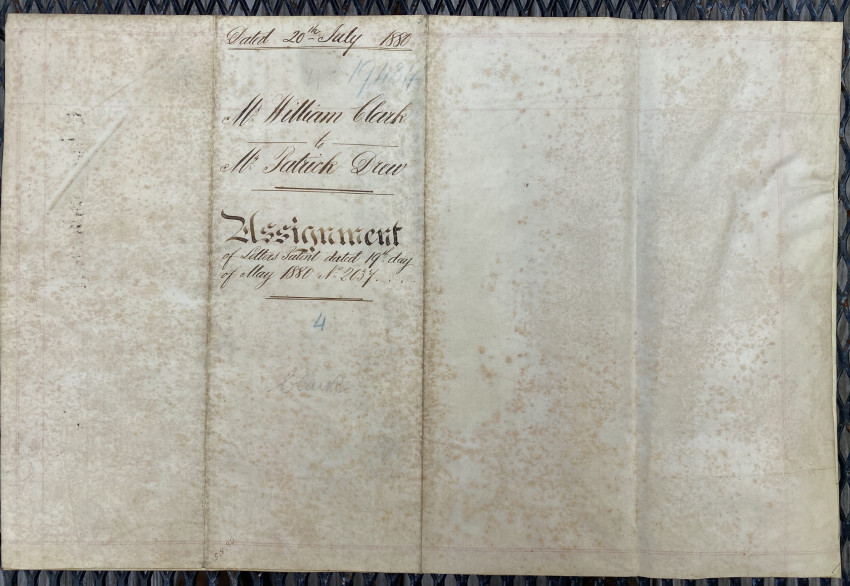 Dated 20th July 1880
Mr William Clark
to
Mr Patrick Drew
Assignment
of Letters Patent dated 19th day
of May 1880 No 2037....
4
Clark